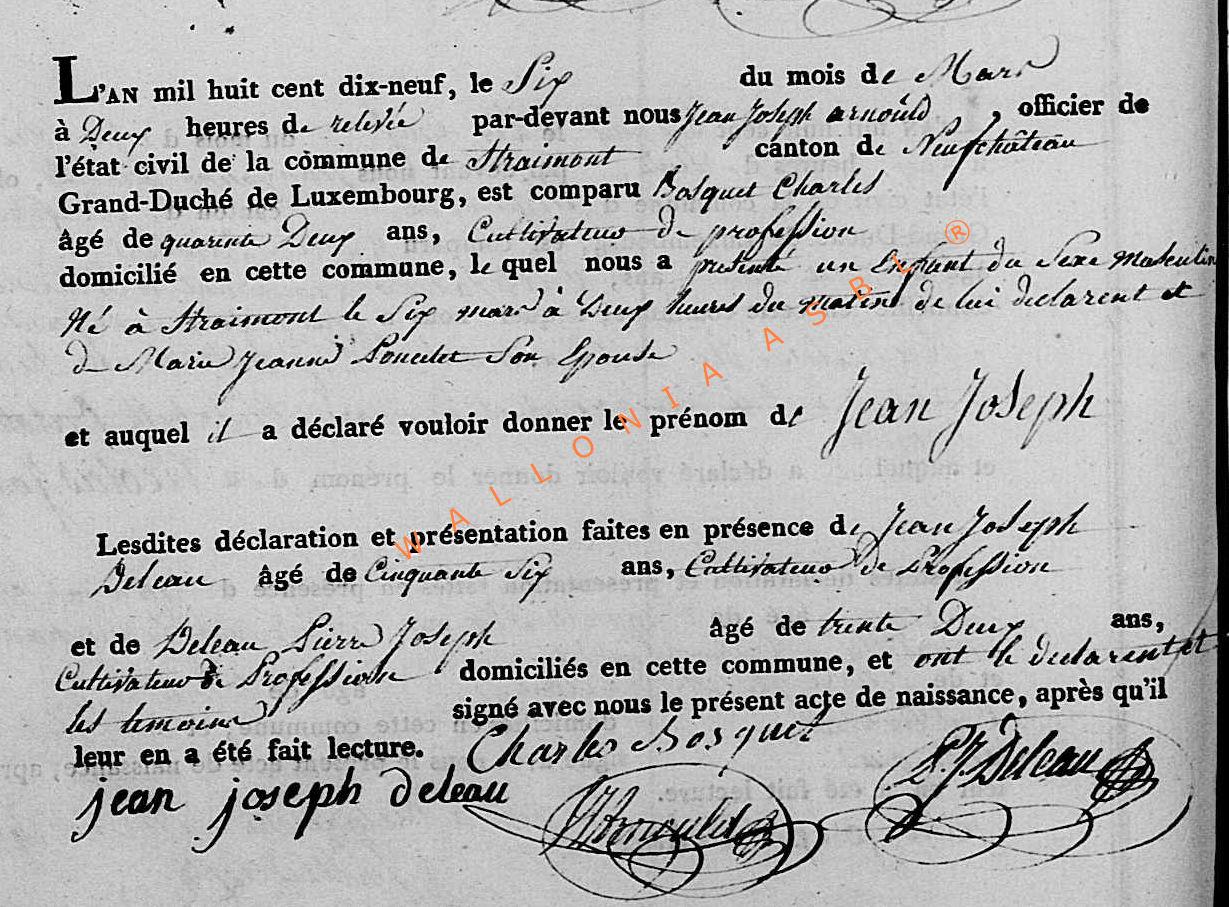 L'AN mil huit cent dix-neuf, le Six du mois de Mars
à Deux heures de relevée par-devant nous Jean Joseph arnould, officier de
l'état civil de la commune de Straimont canton de Neufchâteau
Grand-Duché de Luxembourg, est comparu Bosquet Charles
âgé de quarente Deux ans, Cultivateur de profession
domicilié en cette commune, lequel nous a présenté un Enfant du Sexe Masculin
Né à Straimont le Six mars à Deux heures du matin de lui declarent et
de Marie Jeanne Poncelet Son Epouse
et auquel il a déclaré vouloir donner le prénom de Jean Joseph
Lesdites déclaration et présentation faites en présence de Jean Joseph
Deleau âgé de Cinquante Six ans, Cultivateur de Profession
et de Deleau Pierre Joseph âgé de trente Deux ans,
Cultivateur de Profession domiciliés en cette commune, et ont le declarent et
les temoins signé avec nous le présent acte de naissance, après qu'il
leur en a été fait lecture. Charles Bosquet
P. J. Deleau
jean joseph deleau
JJ Arnould
WALLONIA ASBL ®